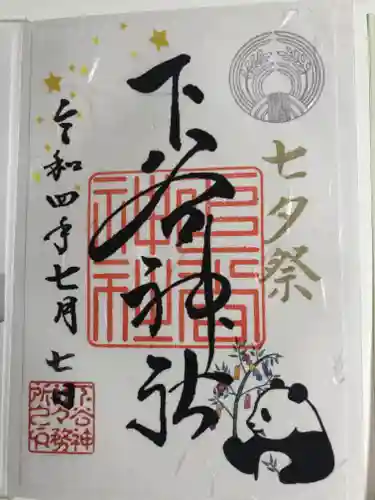 七夕祭
下谷神社
令和四年七月七日
下谷神社